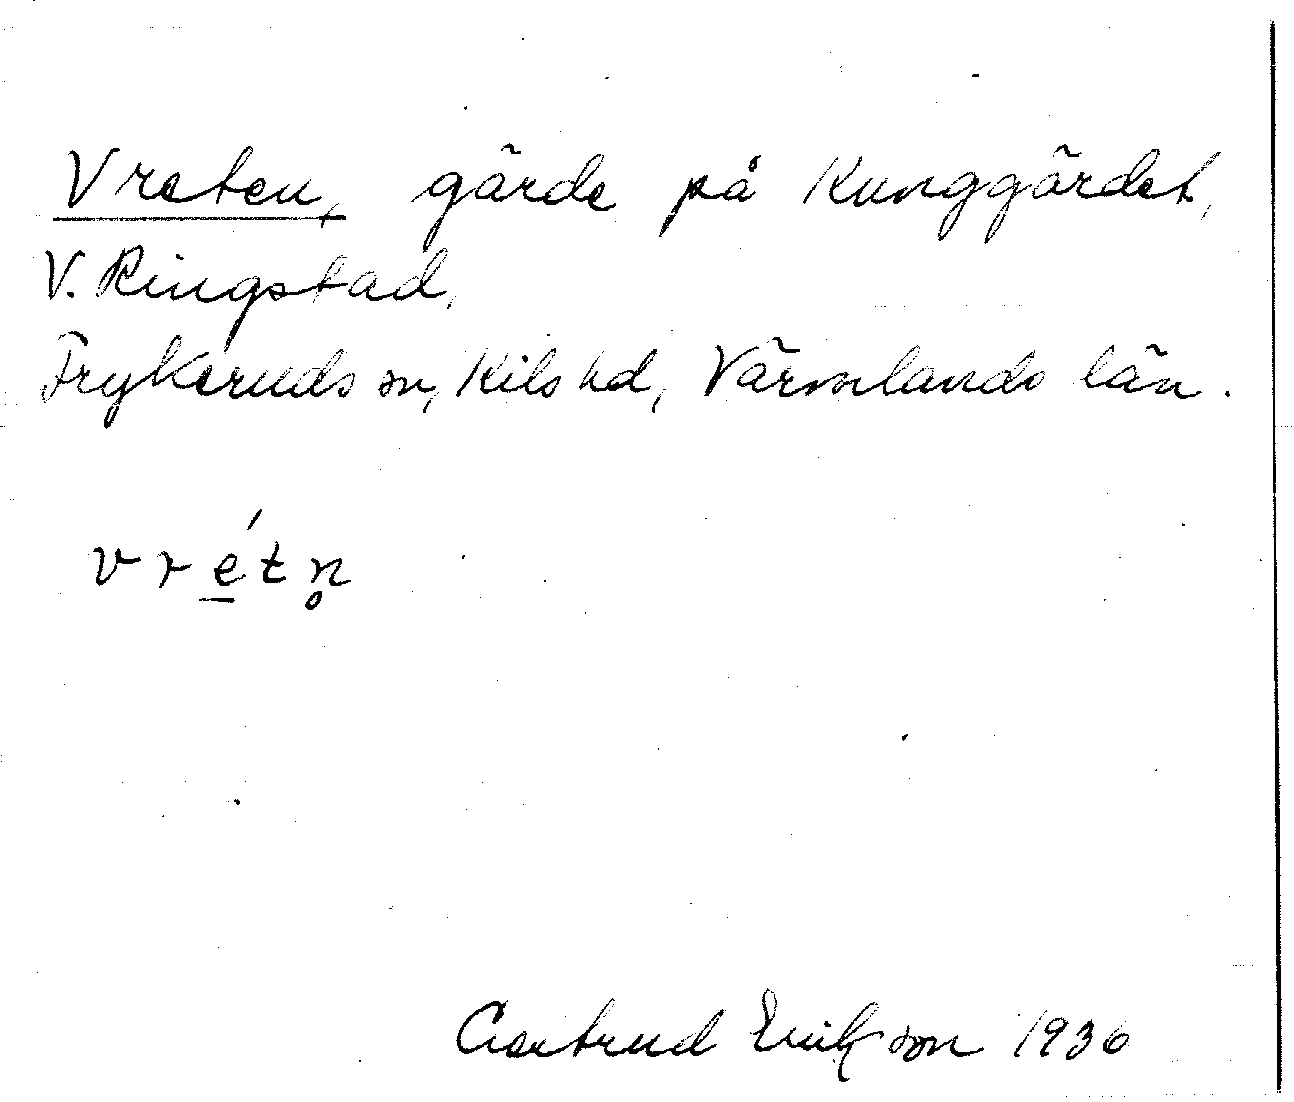 Vreten, gärde på Kunggärdet,
V. Ringstad,
Frykeruds sn, Kils hd, Värmlands län.
vré̱tn̥
Gertrud Erikson 1936